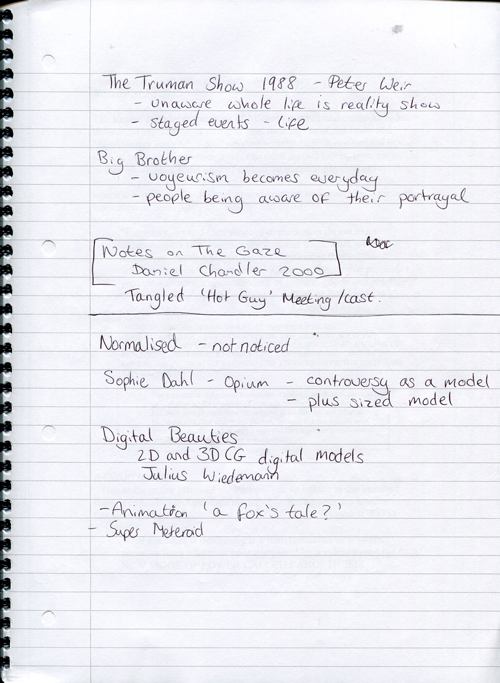 The Truman Show 1988 - Peter Weir
- unaware whole life is reality show
- staged events - life
Big Brother
- voyeurism becomes everyday
- people being aware of their portrayal
Notes on The Gaze
Daniel Chandler 2000
Tangled 'Hot Guy' Meeting/cast.
Normalised - not noticed
Sophie Dahl - Opium - controversy as a model
- plus sized model
Digital Beauties
2D and 3D CG digital models
Julius Wiedemann
- Animation 'a fox's tale?'
- Super Meteroid